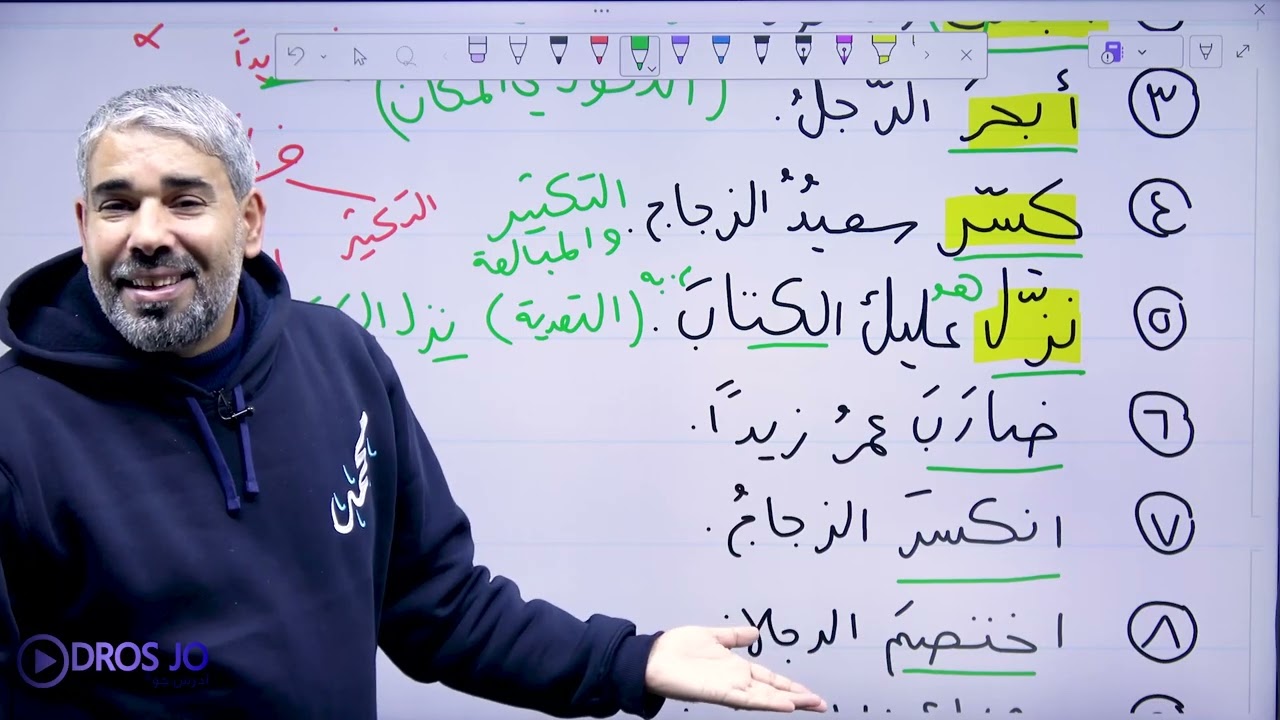 ٣ أبحرَ الرّجلُ. (الدخول في المكان)
٤ كسّر سعيدُ الزجاج. التكثير والمبالغة
التكثير
٥ نزّل هو عليكَ الكتابَ. م. به (التعدية) نزل
٦ ضارَبَ عمرُ زيداً.
٧ انكسرَ الزجاجُ.
٨ اختصمَ الرجلان
محمد
DROS JO
ادرس جو